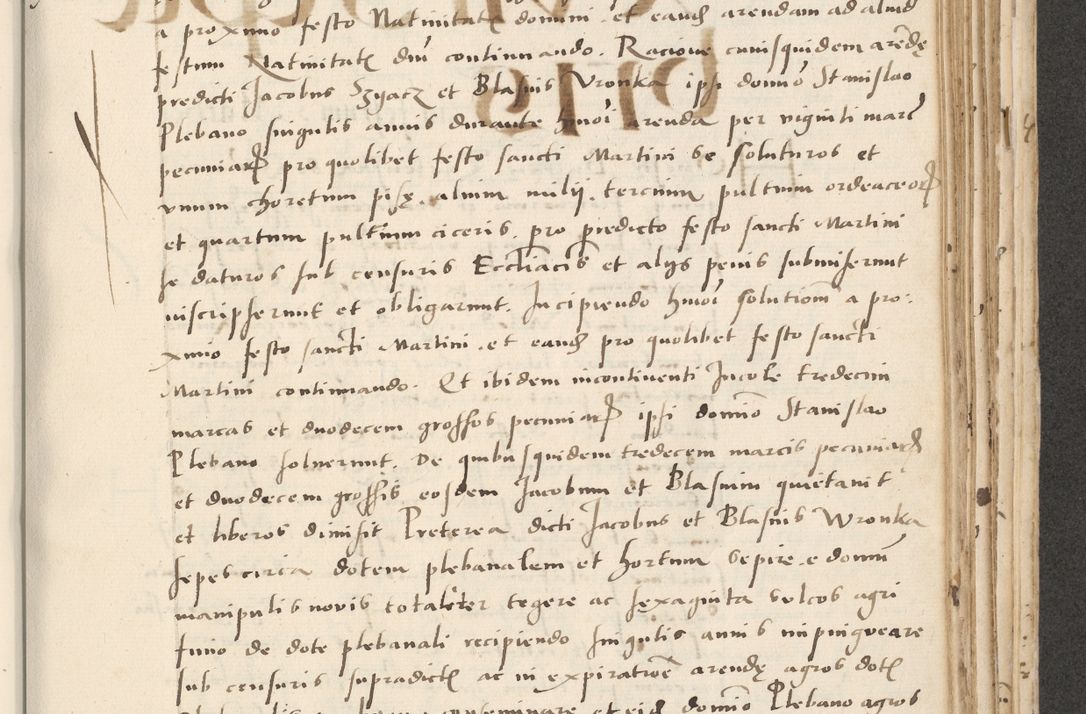 a proximo festo Natiuitatꝭ domini et eandẽ arendam ad aliud
festum Natiuitatꝭ dnĩ continuando. Racione cuiusquidem arẽdę
predicti Jacobus Szyacz et Blasius Wronka ipsi domiõ Stanislao
Plebano singulis annis durante hmõi arenda per viginti marc̃
pecuniarꝝ pro quolibet festo sancti Martini se soluturos et
vnum choretum pisę, alium milij, tercium pultium ordeaceorꝝ
et quartum pultium ciceris, pro predicto festo sancti Martini
se daturos sub censuris Eccl̃iacis̃ et alijs penis submiserunt
inscripserunt et obligarunt. Incipiendo hmõi solutionẽ a pro:
ximo festo sancti Martini et eandẽ pro quolibet festo sancti
Martini continuando. Et ibidem incontinenti Incole tredecim
marcas et duodecem grossos pecuniarꝝ ipsi domiõ Stanislao
Plebano soluerunt. De quibusquidem tredecem marcis pecuniarꝝ
et duodecem grossis eosdem Jacobum et Blasium quietauit
et liberos dimisit Preterea dicti Jacobus et Blasius Wronka
sepes circa dotem plebanalem et hortum sepire, e domũ
manipulis nouis totaliter tegere ac sexaginta sulcos agri
fimo de dote plebanali recipiendo singulis annis impingueare
sub censuris supradictꝭ ac in expiratiõe arendę agros dotꝭ
conseminare et eidẽ domiõ Plebano agros